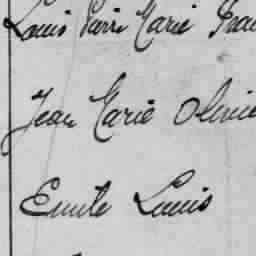 Louis Pierre Marie Fran
Jean Marie Olivie
Emile Louis